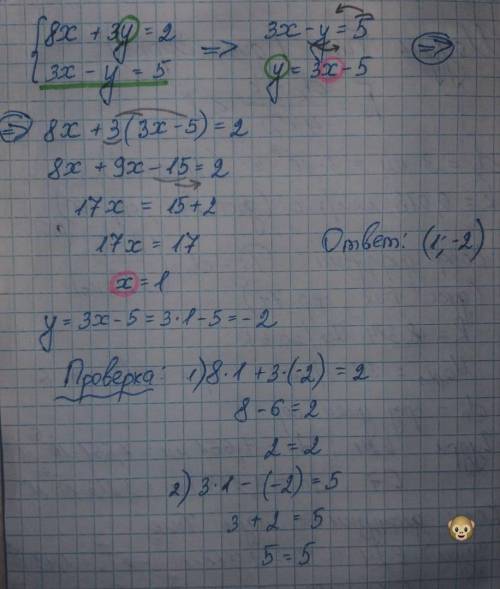 8x + 3y = 2
3x - y = 5
=>
3x - y = 5
y = 3x - 5
=>
=> 8x + 3(3x - 5) = 2
8x + 9x - 15 = 2
17x = 15 + 2
17x = 17
x = 1
Ответ: (1; -2)
y = 3x - 5 = 3·1 - 5 = -2
Проверка: 1) 8·1 + 3·(-2) = 2
8 - 6 = 2
2 = 2
2) 3·1 - (-2) = 5
3 + 2 = 5
5 = 5